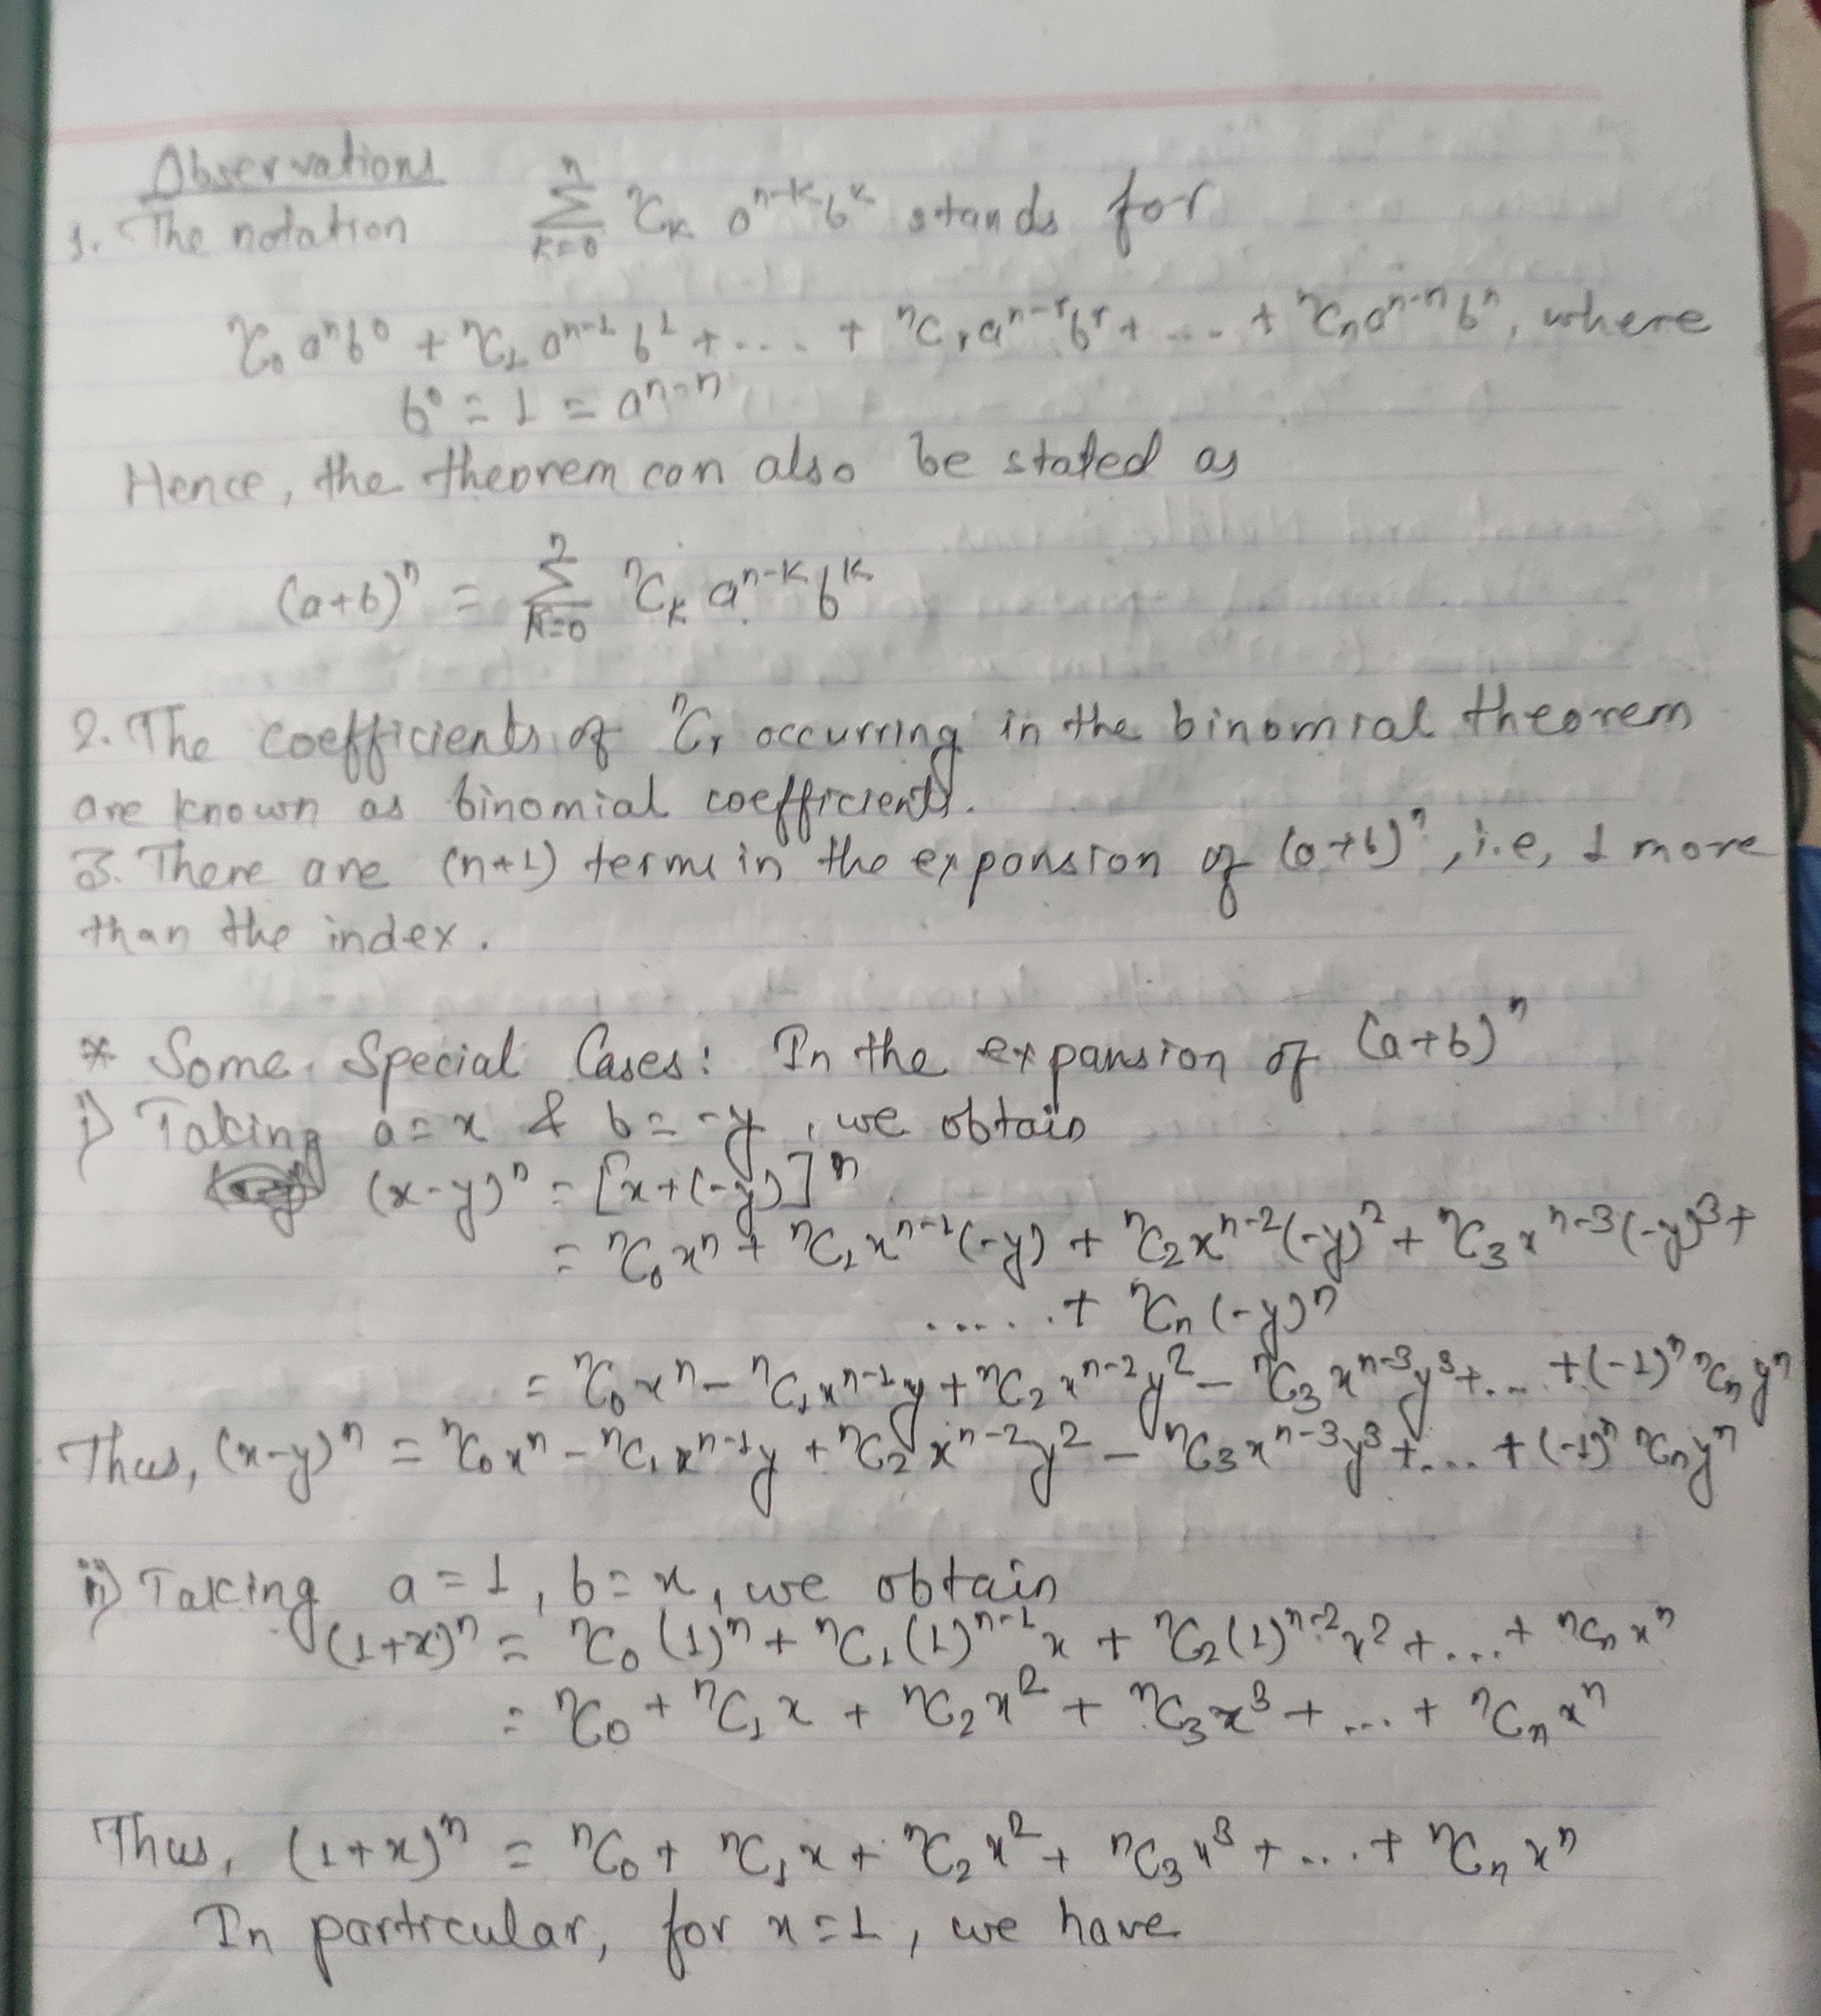 Observations
1. The notation $\sum_{k=0}^{n} {}^{n}C_{k} a^{n-k} b^{k}$ stands for
${}^{n}C_{0} a^{n} b^{0} + {}^{n}C_{1} a^{n-1} b^{1} + .... + {}^{n}C_{r} a^{n-r} b^{r} + .... + {}^{n}C_{n} a^{n-n} b^{n}$, where
$b^{0} = 1 = a^{n-n}$
Hence, the theorem can also be stated as
$(a+b)^{n} = \sum_{k=0}^{n} {}^{n}C_{k} a^{n-k} b^{k}$
2. The coefficients of ${}^{n}C_{r}$ occurring in the binomial theorem
are known as binomial coefficients.
3. There are (n+1) terms in the expansion of $(a+b)^{n}$, i.e, 1 more
than the index.
* Some Special Cases: In the expansion of $(a+b)^{n}$
i) Taking a = x & b = -y, we obtain
$(x-y)^{n} = [x+(-y)]^{n}$
$= {}^{n}C_{0} x^{n} + {}^{n}C_{1} x^{n-1}(-y) + {}^{n}C_{2} x^{n-2}(-y)^{2} + {}^{n}C_{3} x^{n-3}(-y)^{3} +$
$...... + {}^{n}C_{n}(-y)^{n}$
$= {}^{n}C_{0} x^{n} - {}^{n}C_{1} x^{n-1} y + {}^{n}C_{2} x^{n-2} y^{2} - {}^{n}C_{3} x^{n-3} y^{3} + ... + (-1)^{n} \, {}^{n}C_{n} y^{n}$
Thus, $(x-y)^{n} = {}^{n}C_{0} x^{n} - {}^{n}C_{1} x^{n-1} y + {}^{n}C_{2} x^{n-2} y^{2} - {}^{n}C_{3} x^{n-3} y^{3} + ... + (-1)^{n} \, {}^{n}C_{n} y^{n}$
ii) Taking a = 1, b = x, we obtain
$(1+x)^{n} = {}^{n}C_{0}(1)^{n} + {}^{n}C_{1}(1)^{n-1} x + {}^{n}C_{2}(1)^{n-2} x^{2} + ... + {}^{n}C_{n} x^{n}$
$= {}^{n}C_{0} + {}^{n}C_{1} x + {}^{n}C_{2} x^{2} + {}^{n}C_{3} x^{3} + ... + {}^{n}C_{n} x^{n}$
Thus, $(1+x)^{n} = {}^{n}C_{0} + {}^{n}C_{1} x + {}^{n}C_{2} x^{2} + {}^{n}C_{3} x^{3} + ... + {}^{n}C_{n} x^{n}$
In particular, for x = 1, we have